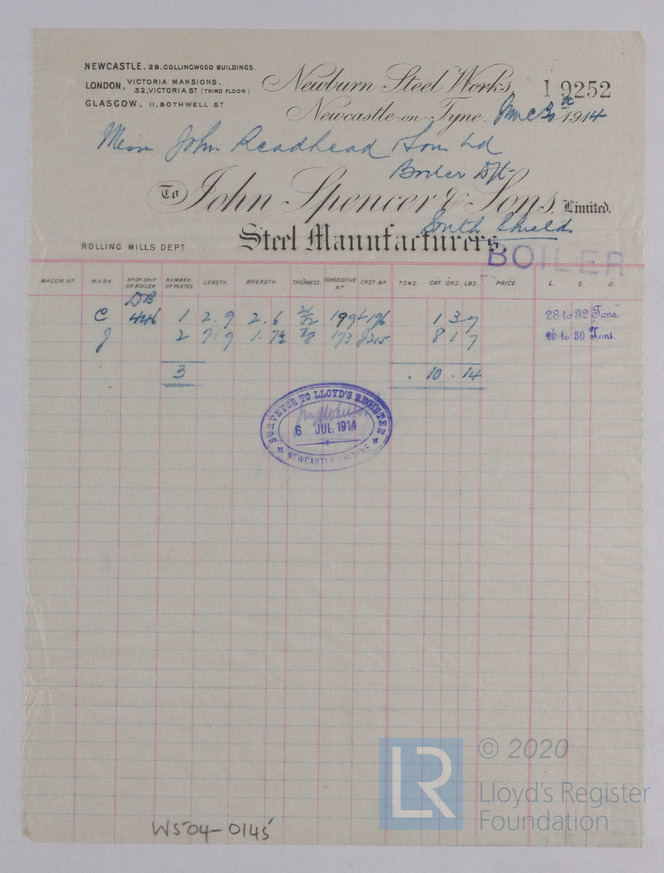 NEWCASTLE. 28. COLLINGWOOD BUILDINGS.
LONDON. VICTORIA MANSIONS. 32, VICTORIA ST (THIRD FLOOR)
GLASGOW. 11, BOTHWELL ST
Newburn Steel Works,
I 9252
Newcastle-on-Tyne. 1914
Messrs John Readhead & Sons Ld
Boiler Dpt
To John Spencer & Sons. Limited.
South Shields
Steel Manufacturers,
ROLLING MILLS DEPT
BOILER
WAGON No MARK No OF SHIP OR BOILER NUMBER OF PLATES LENGTH. BREADTH. THICKNESS. CONSECUTIVE No CAST No TONS. CWT. QRS. LBS. PRICE. L. S. D.
DB
C 446 1 2.9 2.6 1 3 7 28 to 32 Tons.
J 2 7.9 173 8215 8 1 7 26 to 30 Tons.
3 . 10 . 14
SURVEYOR TO LLOYD'S REGISTER
6 JUL 1914
NEWCASTLE-ON-TYNE
LR © 2020
Lloyd's Register
Foundation
WS04-0145